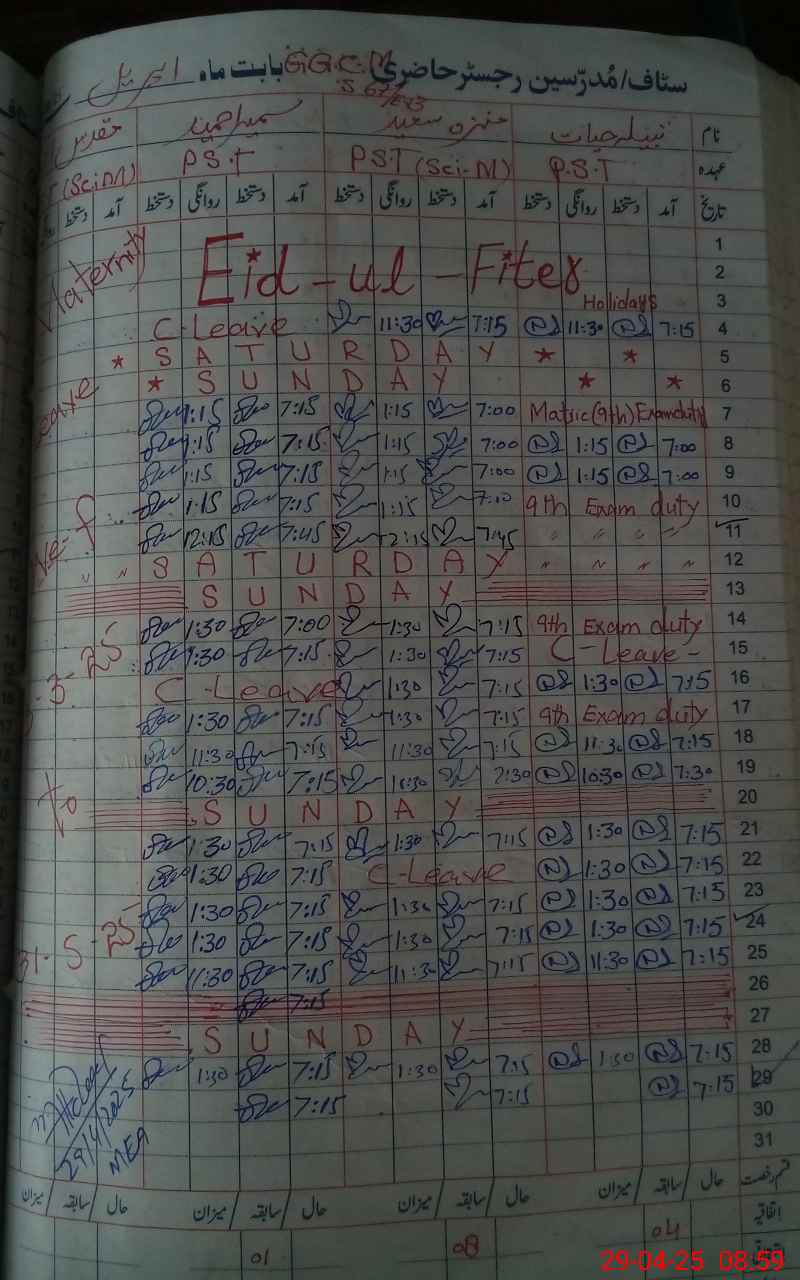 سٹاف/مُدرّسین رجسٹر حاضری GGCM بابت ماہ اپریل
نام نبیلہ حیات سعید سمیرا حمید
عہدہ P.S.T PST (Sci-M) P.S.T (Sci M)
تاریخ آمد دستخط روانگی دستخط آمد دستخط روانگی دستخط آمد دستخط روانگی دستخط آمد دستخط
1
2 Eid-ul-Fiter
3 Holidays
4 7:15 11:30 7:15 11:30 C-Leave
5 * S A T U R D A Y * *
6 * S U N D A Y * *
7 Matric (9th) Exam duty 7:00 1:15 7:15 1:15
8 7:00 1:15 7:00 1:15 7:15 1:15
9 7:00 1:15 7:00 1:15 7:15 1:15
10 9th Exam duty 7:00 1:15 7:15 1:15
11 " " " " 7:45 12:15 7:45 12:15
12 " " S A T U R D A Y " " " "
13 S U N D A Y
14 9th Exam duty 7:15 1:30 7:00 1:30
15 C-Leave- 7:15 1:30 7:15 1:30
16 7:15 1:30 7:15 1:30 C-Leave
17 9th Exam duty 7:15 1:30 7:15 1:30
18 7:15 11:30 7:15 11:30 7:15 11:30
19 7:30 10:30 7:30 10:30 7:15 10:30
20 S U N D A Y
21 7:15 1:30 7:15 1:30 7:15 1:30
22 7:15 1:30 C-Leave 7:15 1:30
23 7:15 1:30 7:15 1:30 7:15 1:30
24 7:15 1:30 7:15 1:30 7:15 1:30
25 7:15 11:30 7:15 11:30 7:15 11:30
26 7:15
27 S U N D A Y
28 7:15 1:30 7:15 1:30 7:15 1:30
29 7:15 7:15 7:15
30
31
Maternity
Leave
To
31-5-25
29/4/2025
MEA
قسم رخصت حال / سابقہ / میزان حال / سابقہ / میزان حال / سابقہ / میزان
اتفاقیہ 04 08 01
29-04-25 08:59